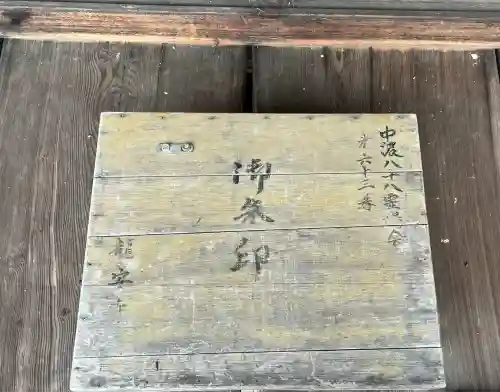 中波八十八霊場会
第六十二番
御朱印
龍安寺